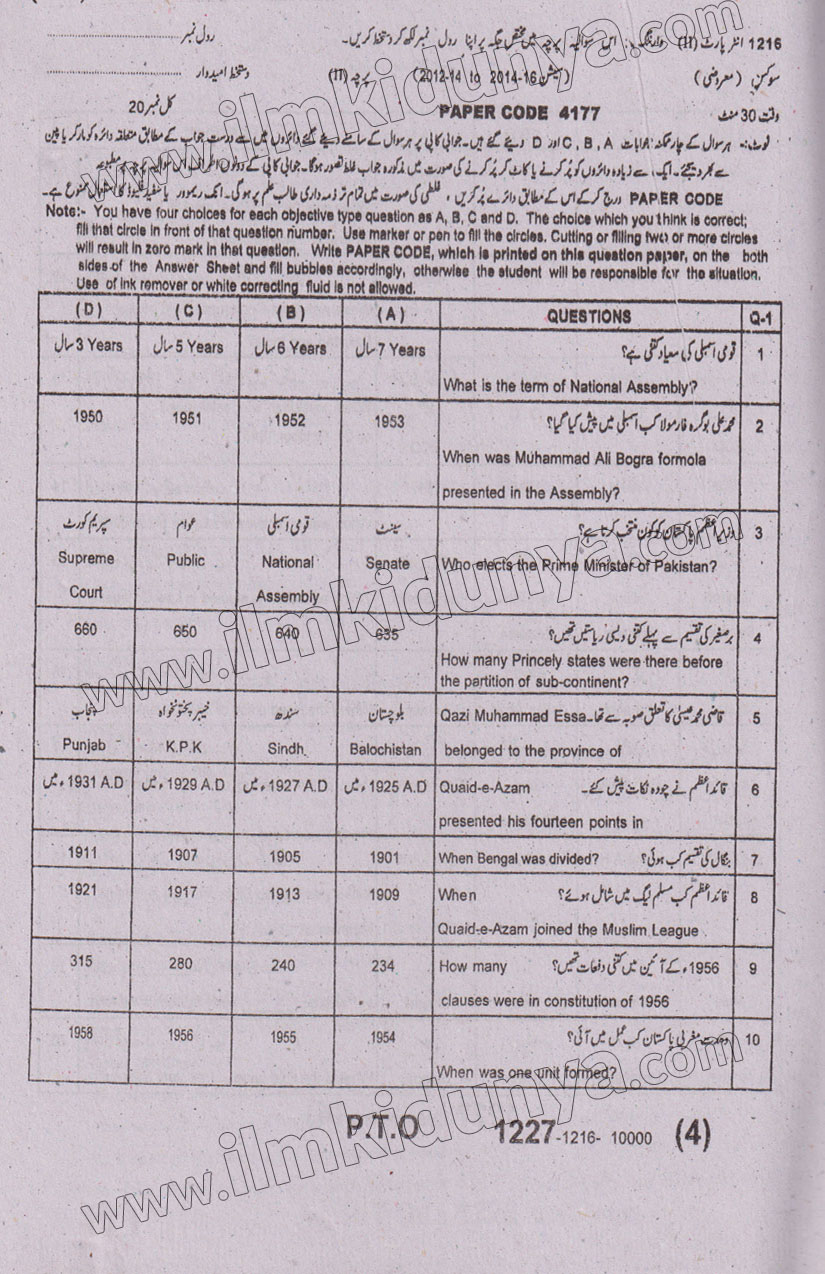 1216 انٹر پارٹ (II) وارننگ:۔ اس سوالیہ پرچہ میں مختص جگہ پر اپنا رول نمبر لکھ کر دستخط کریں۔ رول نمبر
سوکس (معروضی) (سیشن 16-2014 to 2012-14) پرچہ (II) دستخط امیدوار
وقت 30 منٹ PAPER CODE 4177 کل نمبر 20
نوٹ:۔ ہر سوال کے چار ممکنہ جوابات A ,B ,C اور D دیئے گئے ہیں۔ جوابی کاپی پر ہر سوال کے سامنے دیئے گئے دائروں میں سے درست جواب کے مطابق متعلقہ دائرہ کو مارکر یا پین
سے بھر دیجئے۔ ایک سے زیادہ دائروں کو پُر کرنے یا کاٹ کر پُر کرنے کی صورت میں مذکورہ جواب غلط تصور ہوگا۔ جوابی کاپی کے دونوں اطراف اس سوالیہ پرچہ پر مطبوعہ
PAPER CODE درج کر کے اس کے مطابق دائرے پُر کریں، غلطی کی صورت میں تمام تر ذمہ داری طالب علم پر ہوگی۔ انک ریموور یا سفید فلیوڈ کا استعمال ممنوع ہے۔
Note:- You have four choices for each objective type question as A, B, C and D. The choice which you think is correct;
fill that circle in front of that question number. Use marker or pen to fill the circles. Cutting or filling two or more circles
will result in zero mark in that question. Write PAPER CODE, which is printed on this question paper, on the both
sides of the Answer Sheet and fill bubbles accordingly, otherwise the student will be responsible for the situation.
Use of ink remover or white correcting fluid is not allowed.
(D) (C) (B) (A) QUESTIONS Q-1
3 Years سال 5 Years سال 6 Years سال 7 Years سال قومی اسمبلی کی معیاد کتنی ہے؟ 1
What is the term of National Assembly?
1950 1951 1952 1953 محمد علی بوگرہ فارمولا کب اسمبلی میں پیش کیا گیا؟ 2
When was Muhammad Ali Bogra formola
presented in the Assembly?
سپریم کورٹ عوام قومی اسمبلی سینٹ وزیراعظم پاکستان کو کون منتخب کرتا ہے؟ 3
Supreme Public National Senate Who elects the Prime Minister of Pakistan?
Court Assembly
660 650 640 635 برصغیر کی تقسیم سے پہلے کتنی دیسی ریاستیں تھیں؟ 4
How many Princely states were there before
the partition of sub-continent?
پنجاب خیبر پختونخواہ سندھ بلوچستان Qazi Muhammad Essa قاضی محمد عیسیٰ کا تعلق صوبہ سے تھا۔ 5
Punjab K.P.K Sindh Balochistan belonged to the province of
1931 A.D ء میں 1929 A.D ء میں 1927 A.D ء میں 1925 A.D ء میں Quaid-e-Azam قائداعظم نے چودہ نکات پیش کئے۔ 6
presented his fourteen points in
1911 1907 1905 1901 When Bengal was divided? بنگال کی تقسیم کب ہوئی؟ 7
1921 1917 1913 1909 When قائداعظم کب مسلم لیگ میں شامل ہوئے؟ 8
Quaid-e-Azam joined the Muslim League
315 280 240 234 How many 1956ء کے آئین میں کتنی دفعات تھیں؟ 9
clauses were in constitution of 1956
1958 1956 1955 1954 وحدت مغربی پاکستان کب عمل میں آئی؟ 10
When was one unit formed?
P.T.O 1227-1216- 10000 (4)
www.ilmkidunya.com
www.ilmkidunya.com
www.ilmkidunya.com
www.ilmkidunya.com